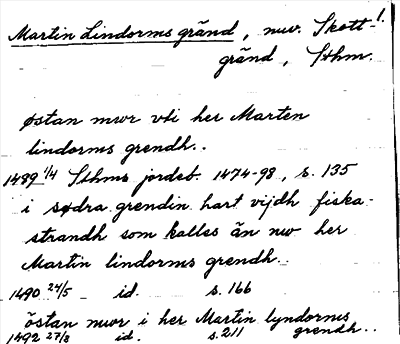 Martin Lindorms gränd, nuv. Skott-
gränd, Sthm.
østan mwr vti her Marten
lindorms grendh..
1489 1/4 Sthms jordeb. 1474-98, s. 135
i sødra grendin hart vijdh fiska-
strandh som kalles än nw her
Martin lindorms grendh..
1490 24/5 id. s. 166
östan mwr i her Martin lyndorms
grendh..
1492 27/8 id. s. 211